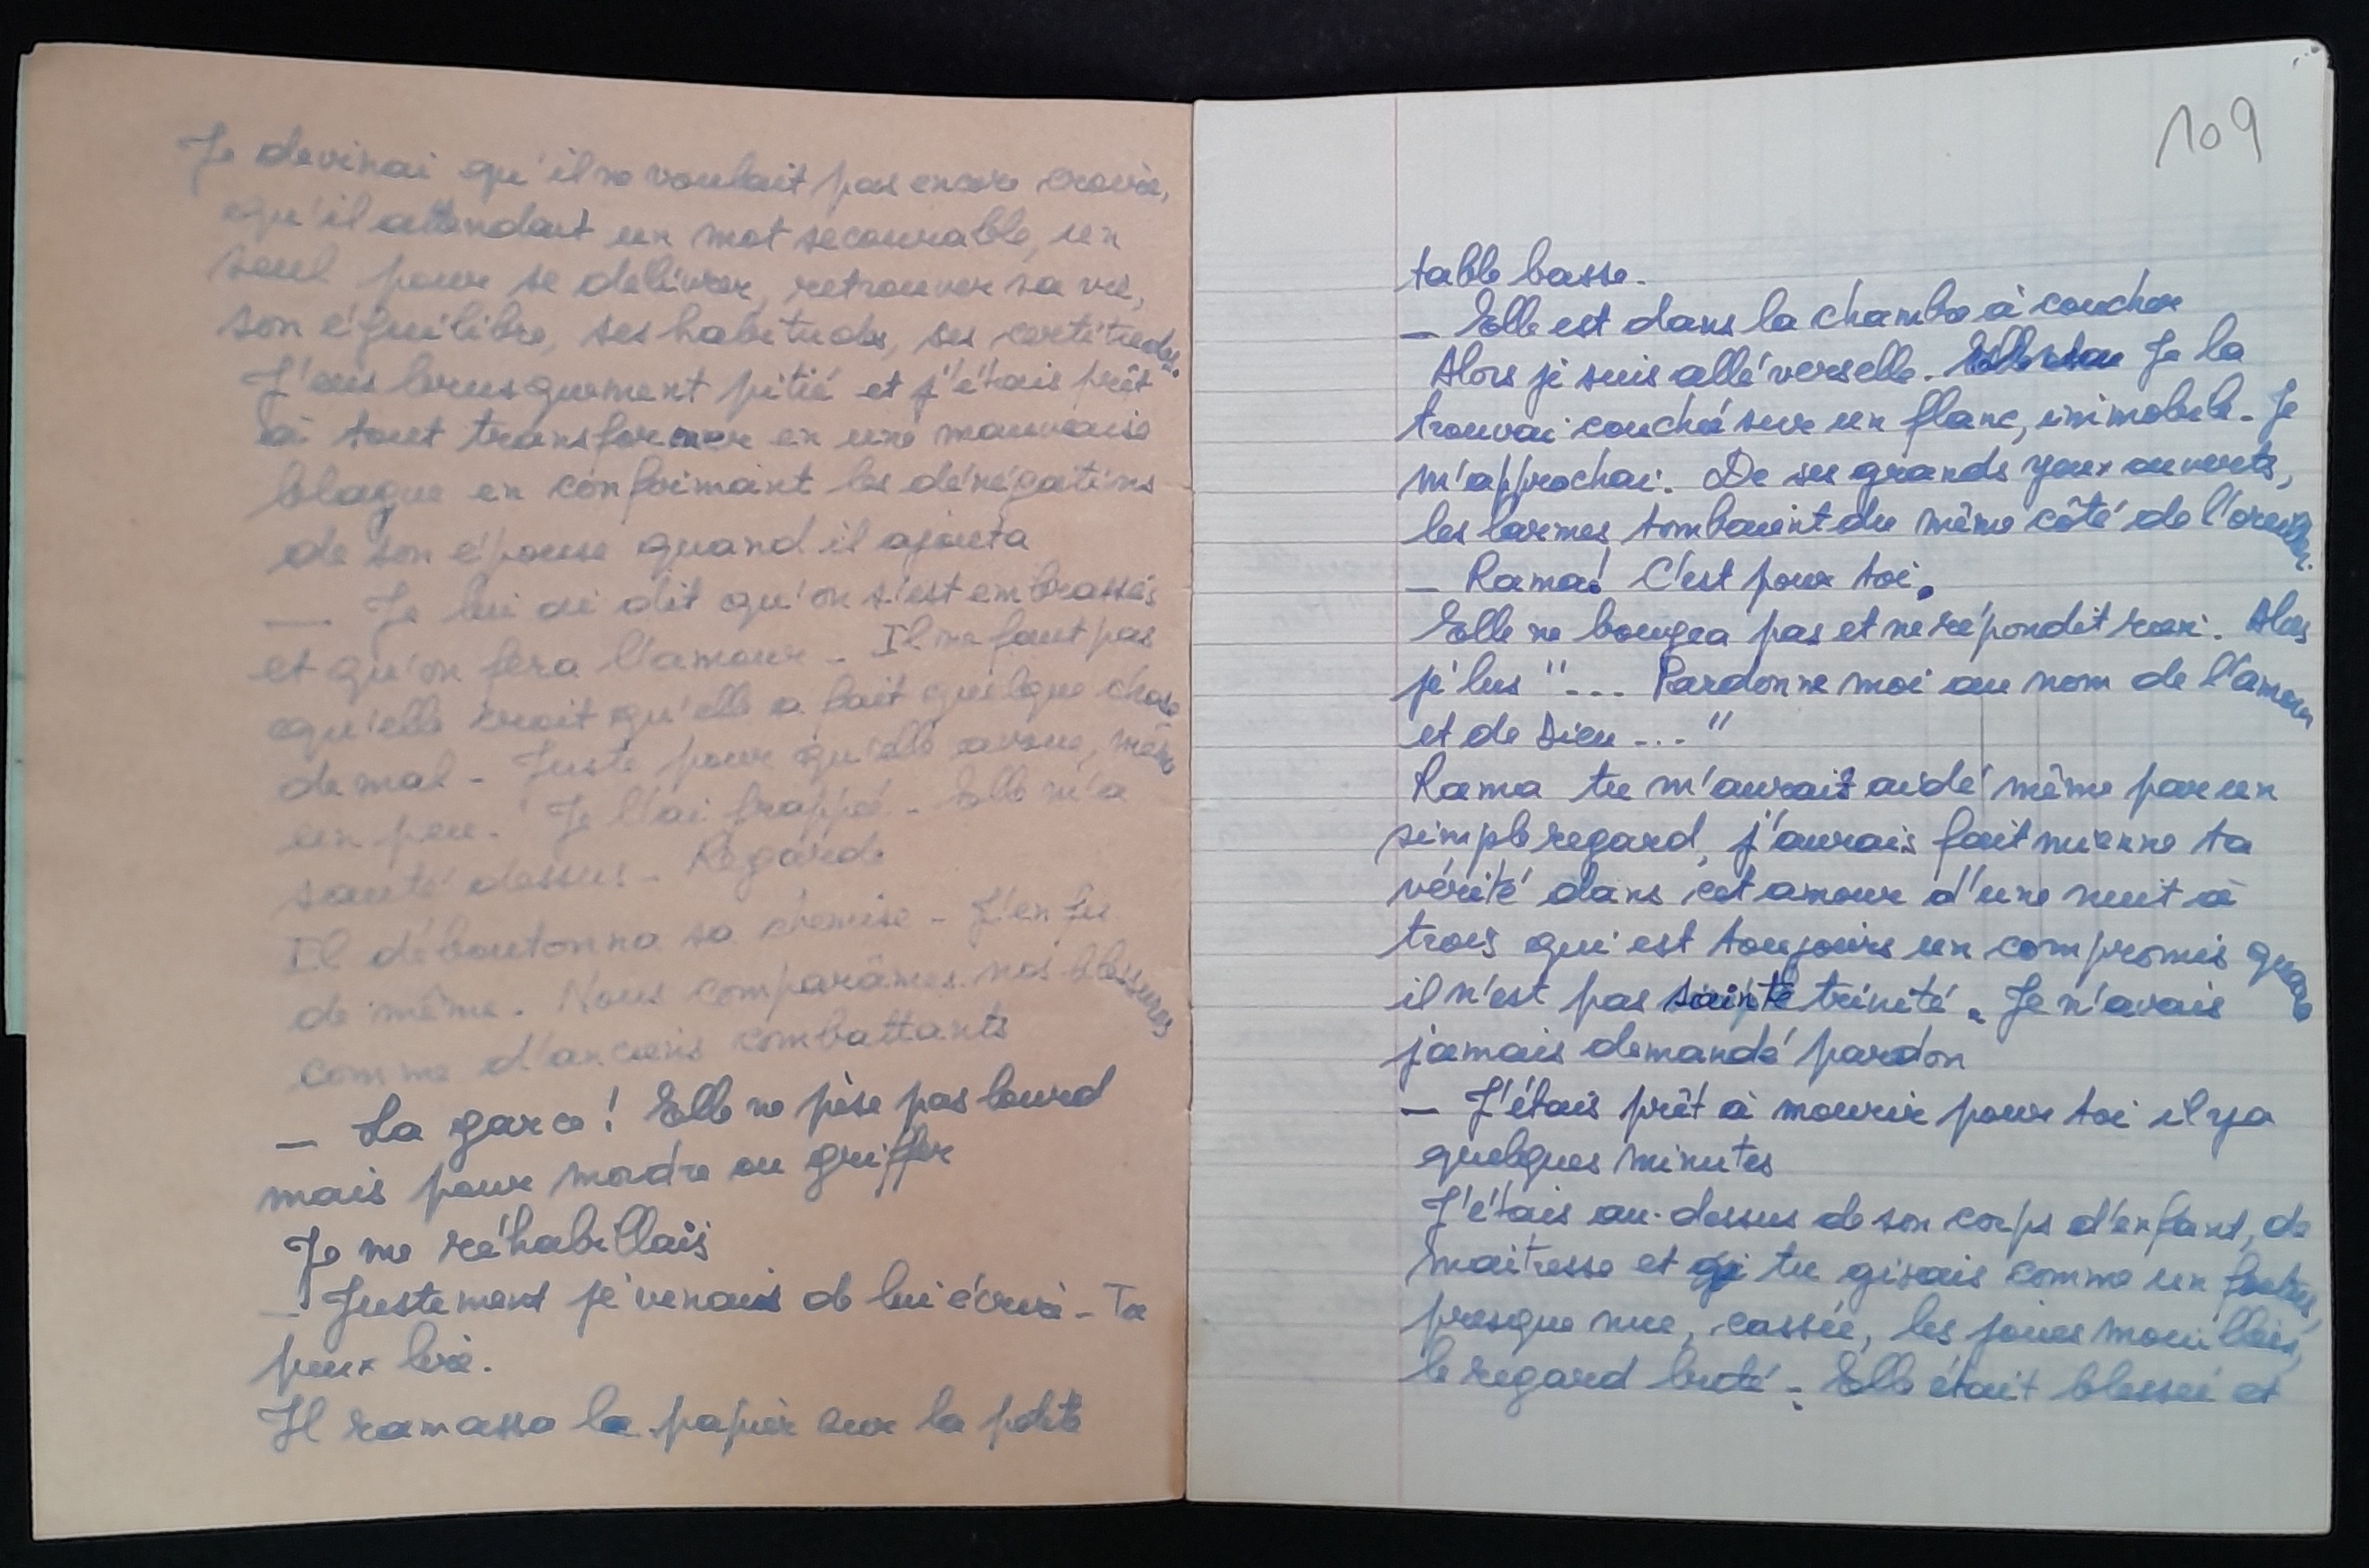 Je devinai qu'il ne voulait pas encore croire,
qu'il attendait un mot secourable, un
seul pour se délivrer, retrouver sa vie,
son équilibre, ses habitudes, ses certitudes.
J'eus brusquement pitié et j'étais prêt
à tout transformer en une mauvaise
blague en confirmant les dénégations
de son épouse quand il ajouta
— Je lui ai dit qu'on s'est embrassés
et qu'on fera l'amour - Il ne faut pas
qu'elle croit qu'elle a fait quelque chose
de mal - Juste pour qu'elle avoue, même
un peu. Je l'ai frappé - Elle m'a
sauté dessus - Regarde
Il déboutonna sa chemise - J'en fis
de même. Nous comparâmes nos blessures
comme d'anciens combattants
— La garce ! Elle ne pèse pas lourd
mais pour mordre ou griffer
Je me réhabillais
— Justement je venais de lui écrire - Tu
peux lire.
Il ramassa le papier sur la petite
109
table basse.
— Elle est dans la chambre à coucher
Alors je suis allé vers elle. Je la
trouvai couchée sur un flanc, immobile - Je
m'approchai. De ses grands yeux ouverts,
les larmes tombaient du même côté de l'oreiller.
— Rama! C'est pour toi.
Elle ne bougea pas et ne répondit rien. Alors
je lus "... Pardonne moi au nom de l'amour
et de Dieu ..."
Rama tu m'aurais aidé même par un
simple regard, j'aurais fait mienne ta
vérité dans cet amour d'une nuit à
trois qui est toujours un compromis quand
il n'est pas sainte trinité. Je n'avais
jamais demandé pardon
— J'étais prêt à mourir pour toi il y a
quelques minutes
J'étais au-dessus de son corps d'enfant, de
maitresse et tu gisais comme un
presque nue, cassée, les joues mouillées,
le regard buté. Elle était blessée et